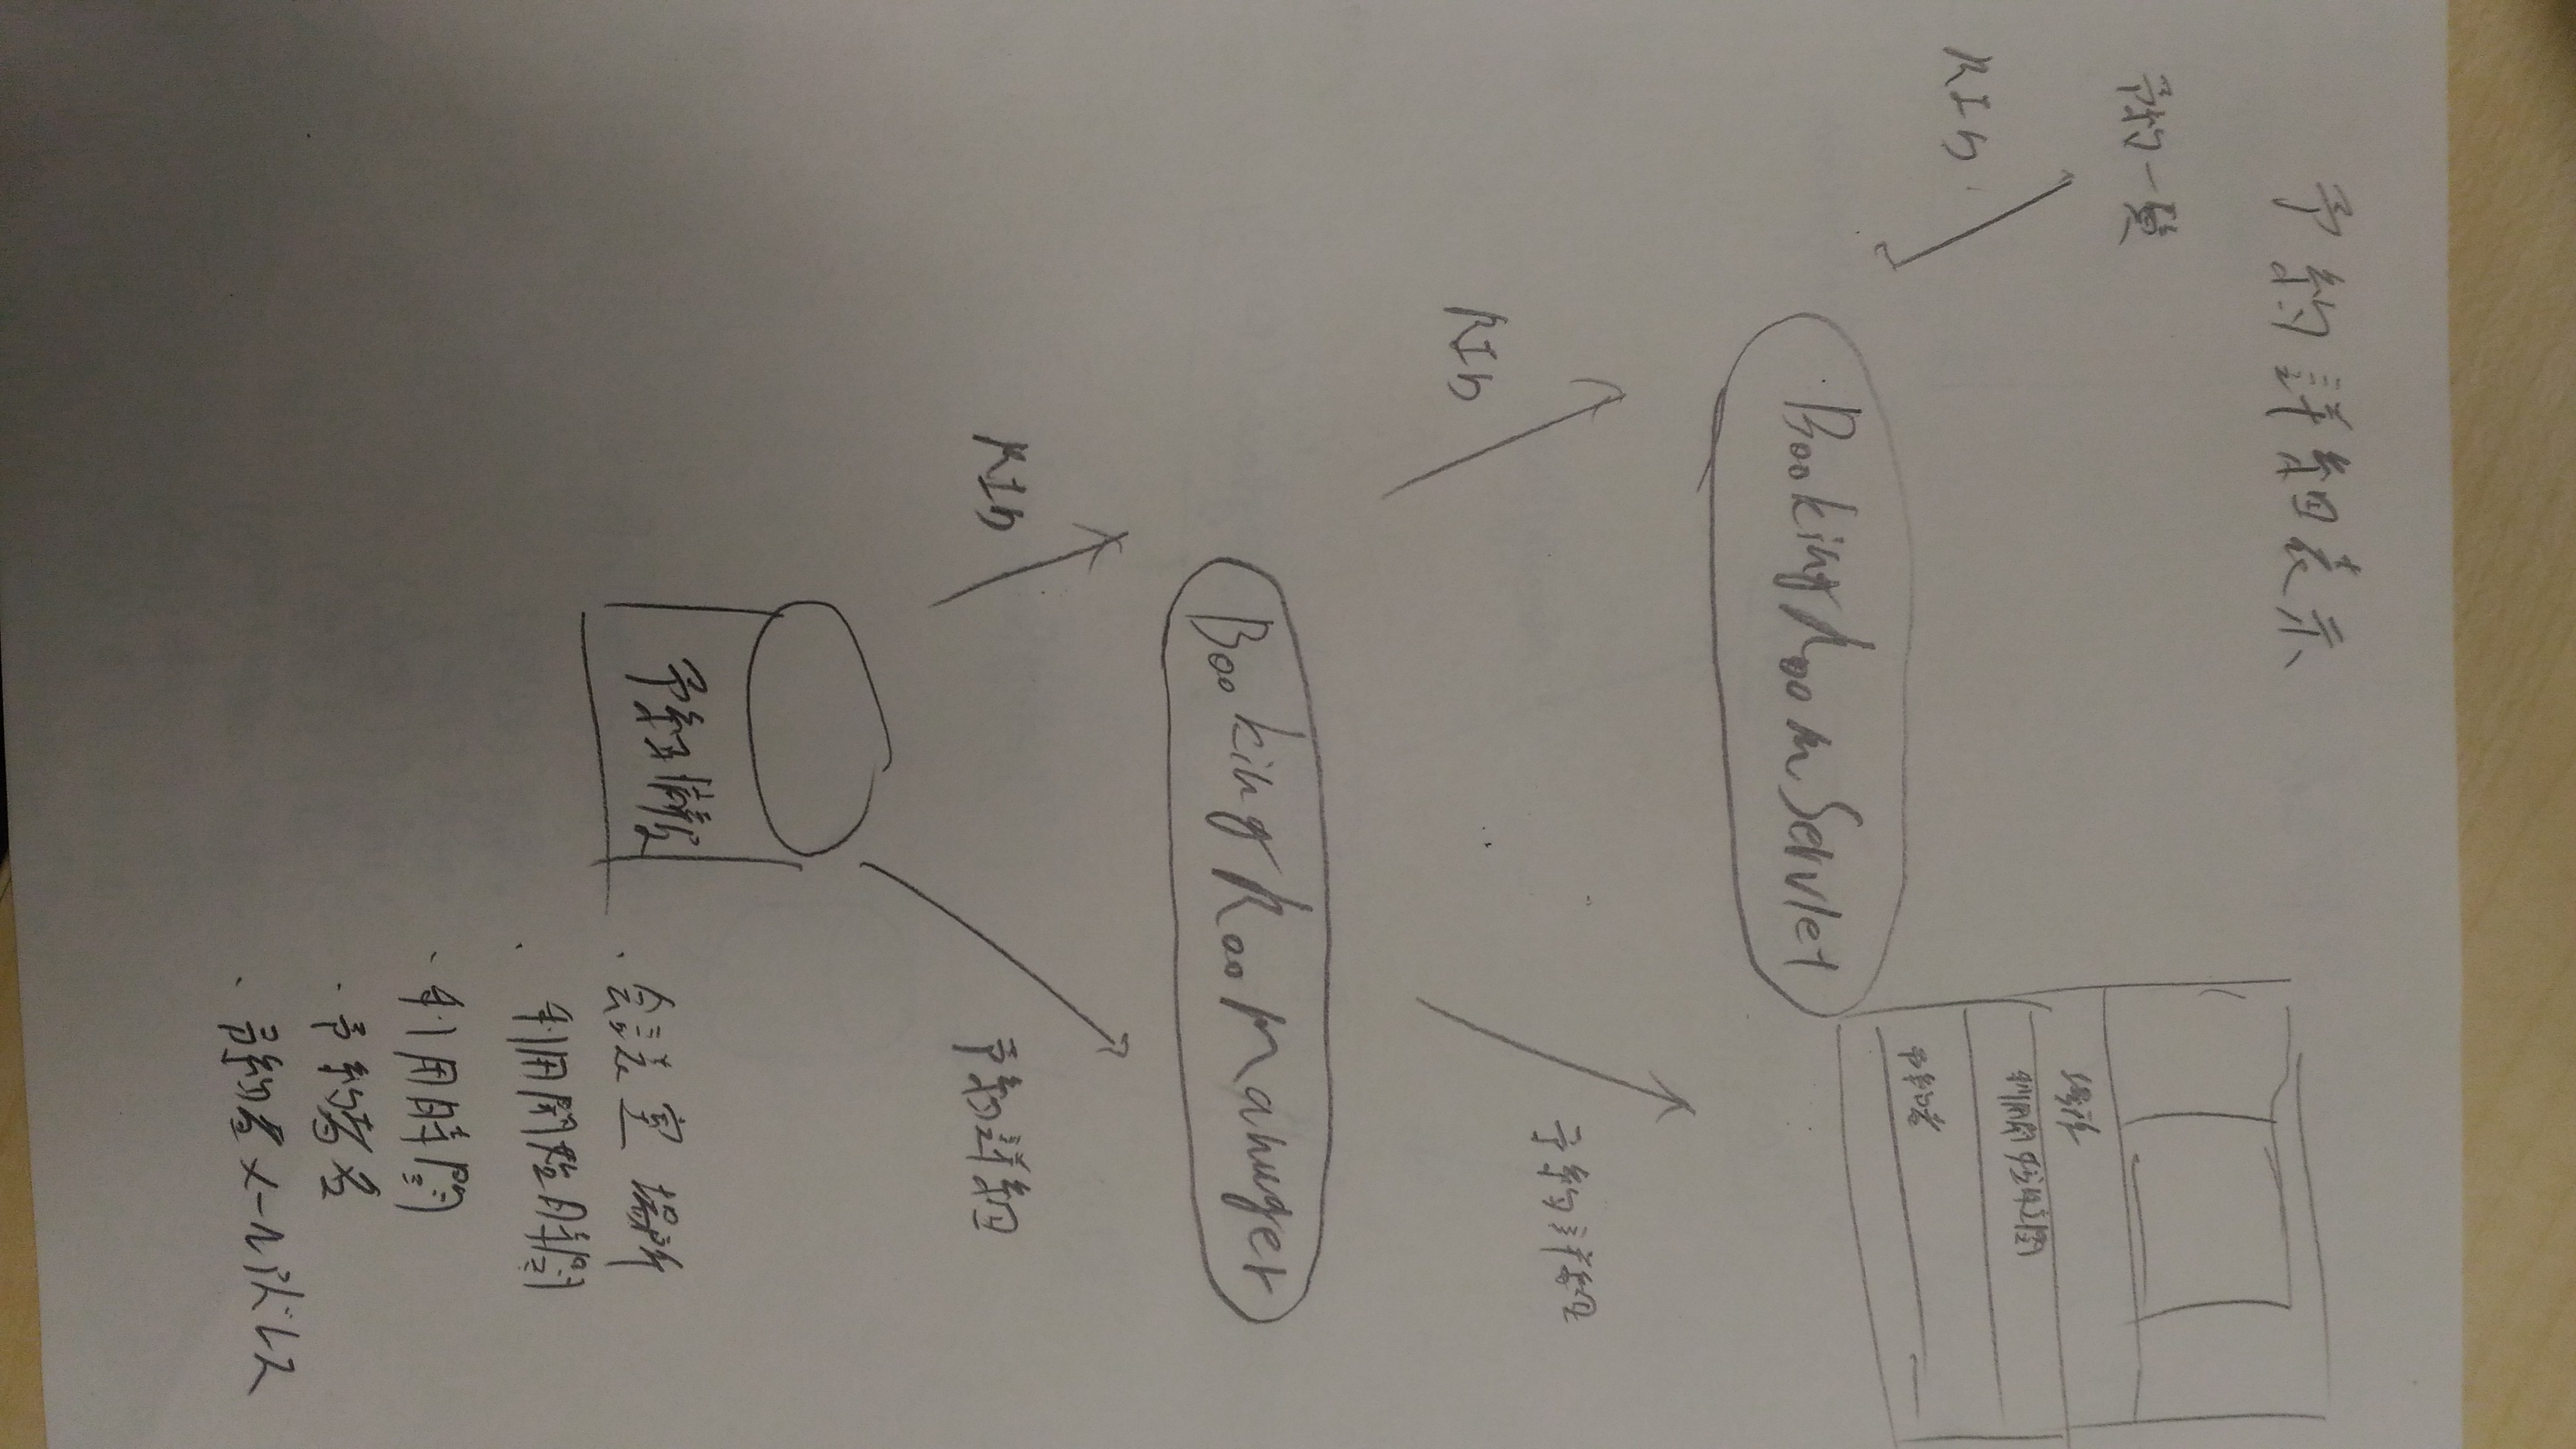 予約詳細表示
予約一覧
RID
場所
利用開始時間
予約者
BookingRoomServlet
RID
予約詳細
BookingRooManager
RID
予約詳細
予約情報
・会議室 場所
・利用開始時間
・利用時間
・予約者名
・予約者メールアドレス